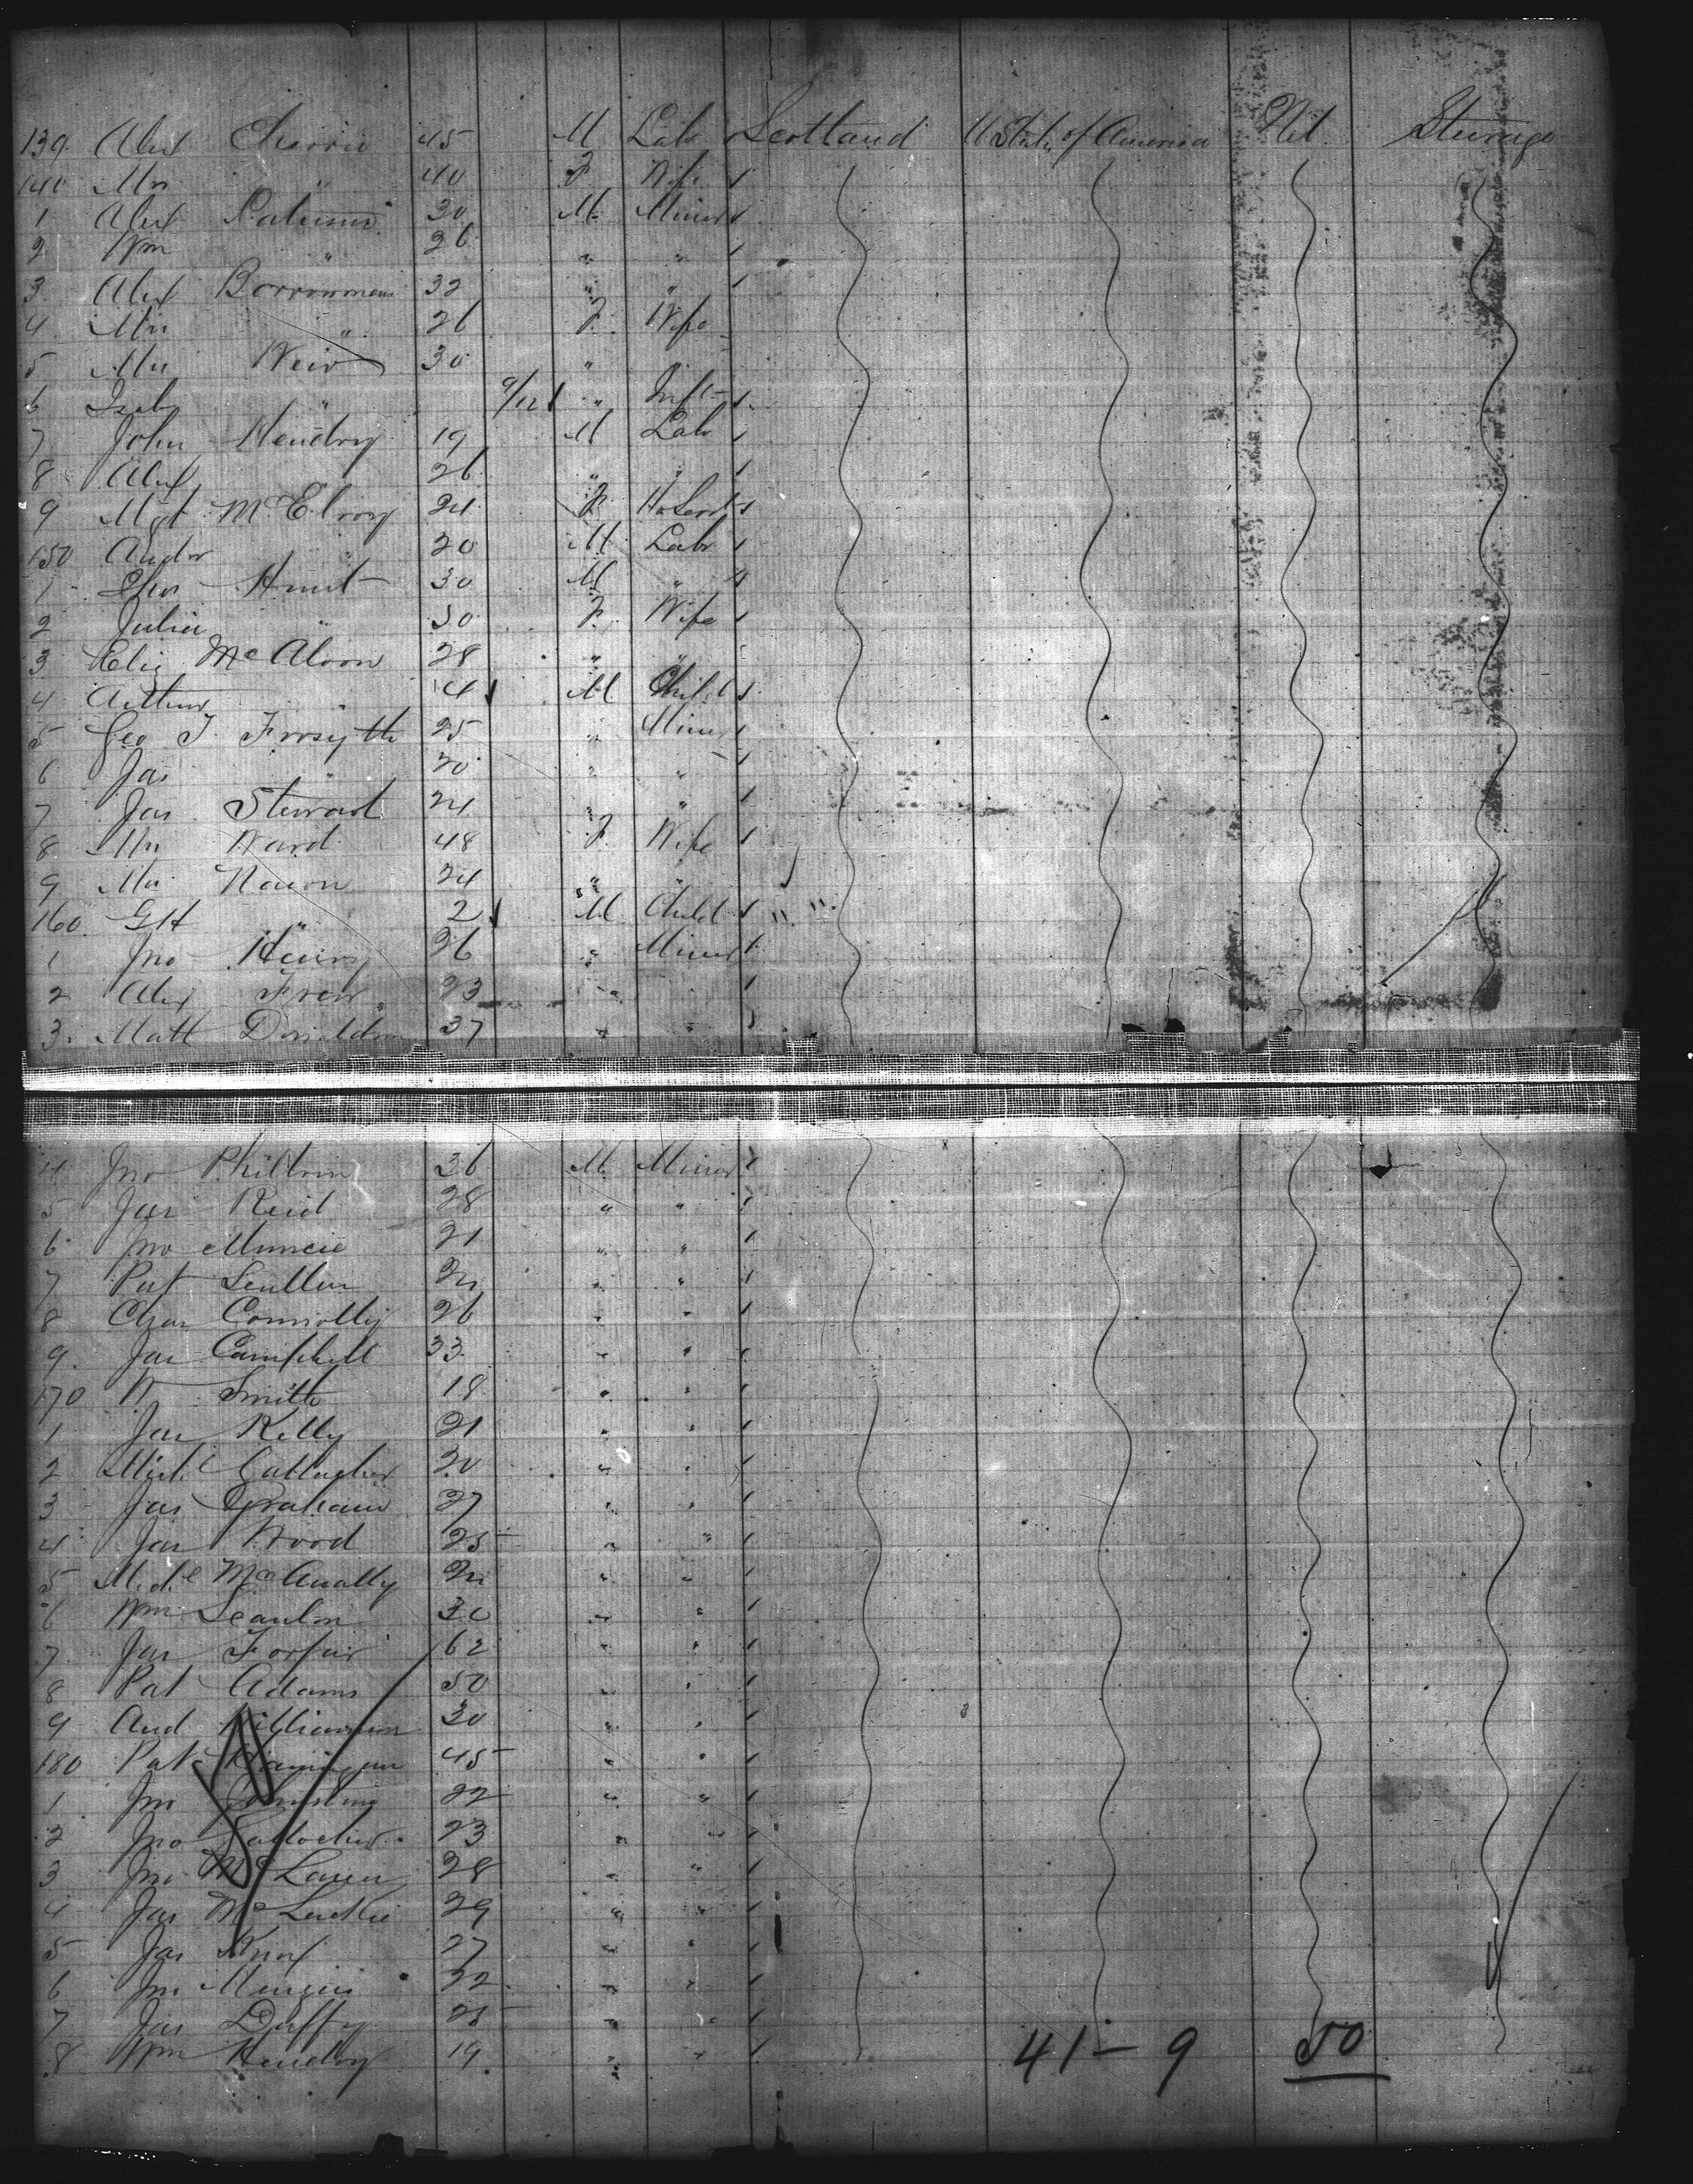 139. Alex Cherrie 45 M Labr Scotland U States of America Nil Steerage
140 Mrs " 40 F Wife
1 Alex 30 M Miner
2 Wm " 26 " "
3 Alex Borrowman 32 " "
4 Mrs " 26 F Wife
5 Mrs Weir 30 " "
6 Isab " 9/12 " Inft
7 John Hendry 19 M Labr
8 Alex " 26 " "
9 Mgt McElroy 24 F
150 Andw " 20 M Labr
1 Hunt 30 M "
2 Julia " 30 F Wife
3 Eliz McAloon 28 " "
4 Arthur " 4 M Child
5 Geo T Forsyth 25 " Miner
6 Jas " 20 " "
7 Jas Stewart 24 " "
8 Mrs Ward 48 F Wife
9 Mrs 24 " "
160. GH " 2 M Child " "
1 Jno Henry 26 " Miner
2 Alex 23 " "
3. Matt Donaldson 37 " "
4 Jno 36 M Miner
5 Jas Reid 28 " "
6 Jno Muncie 21 " "
7 Pat Scullin " "
8 Chas Connolly 26 " "
9. Jas Campbell 33 " "
170 W Smith 18 " "
1 Jas Kelly 21 " "
2 Michl Gallagher 20 " "
3 Jas Graham 27 " "
4 Jas Wood 25 " "
5 Michl McAnally " "
6 Wm Scanlon 30 " "
7 Jas Forfar 62 " "
8 Pat Adams 50 " "
9 And Williamson 30 " "
180 Pat 45 " "
1 22 " "
2 Jno 23 " "
3 Jno McLaren 28 " "
4 Jas McLuckie 29 " "
5 Jas Knox 27 " "
6 22 " "
7 Jas Duffy 25 " "
8 Wm Hendry 19. " "
41 - 9 50